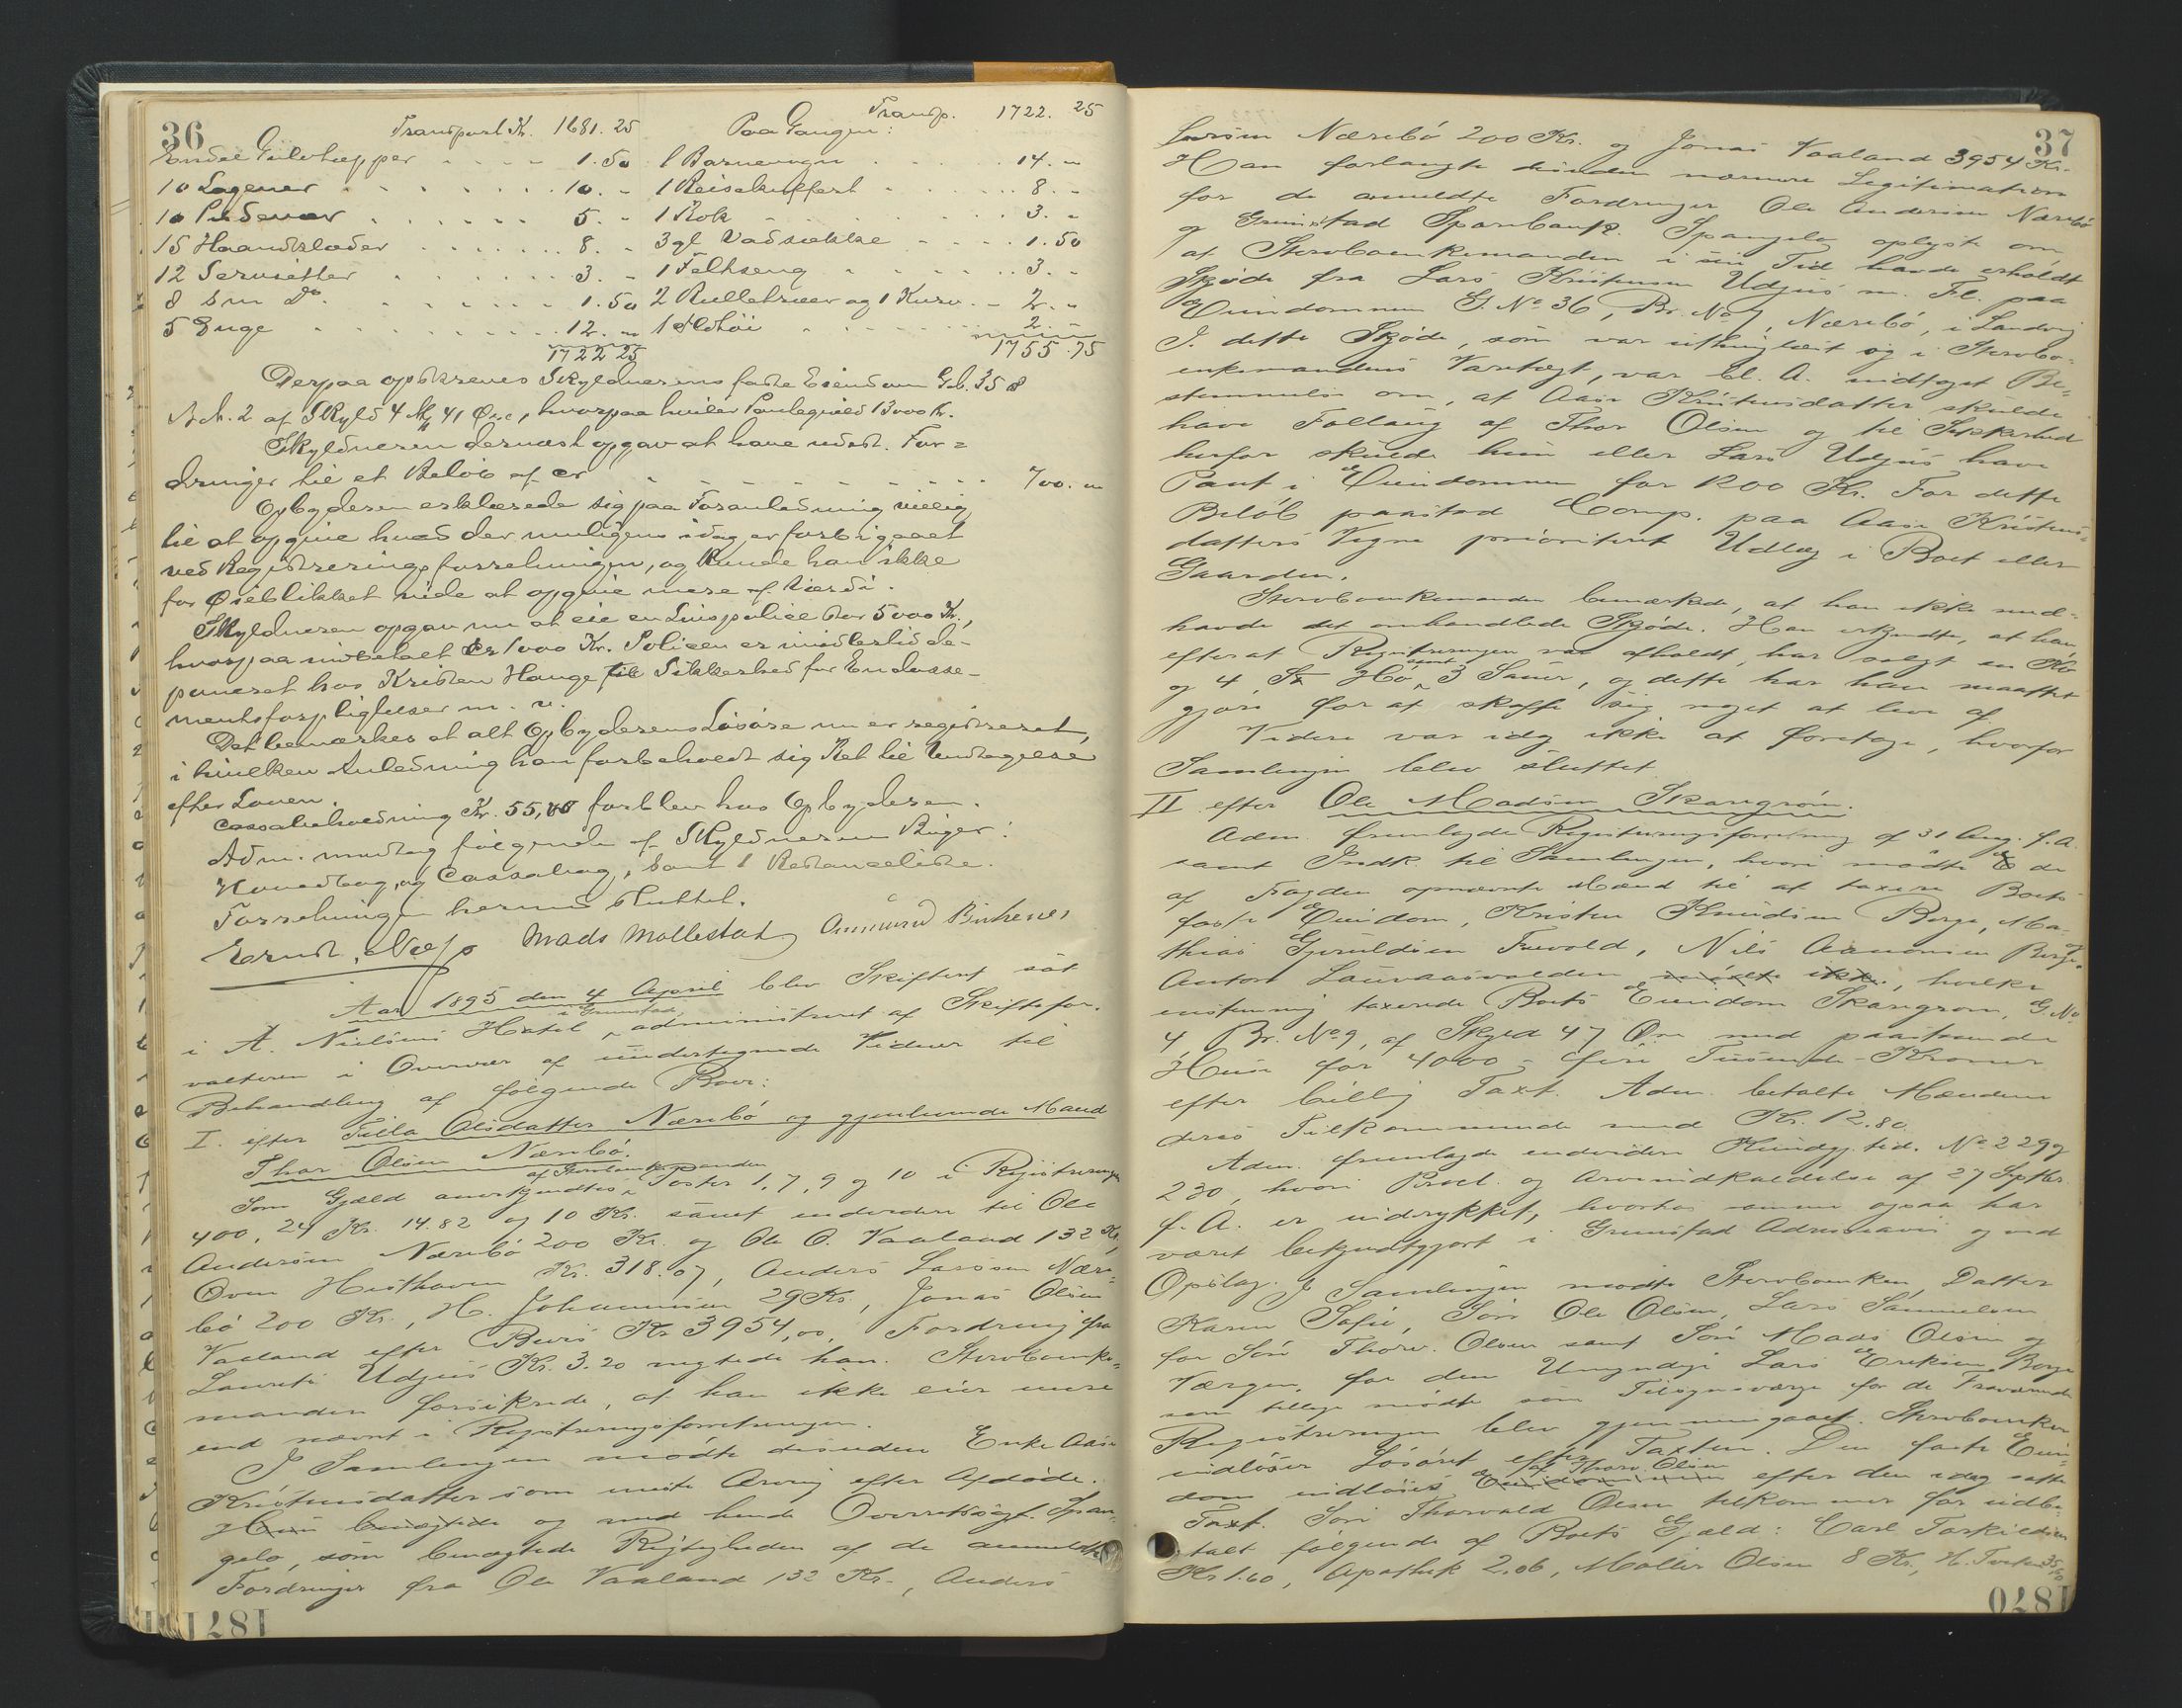 36
Transport Kr. 1681.25
Endel Gulvtæpper 1.50
10 Lagener 10. "
10 Pudevar 5. "
15 Haandklæder 8. "
12 Servietter 3. "
8 sm Do. 1.50
5 Duge 12. "
1722 25
Transp. 1722. 25
Paa Gangen:
1 Barnevogn 14. "
1 Reisekuffert 8. "
1 Rok 3. "
3 gl Vadsække 1.50
1 Feltseng 3. "
2 Rulletræer og 1 Kurv 2. "
1 2. "
1755.75
Derpaa opskreves Skyldnerens faste Eiendom Gb. 35
B.N. 2 af Skyld 4 Mk 41 Øre, hvorpaa hviler Pantegjæld 13000 Kr.
Skyldneren dernæst opgav at have udest. For=
dringer til et Beløb af cr 700. "
Opbyderen erklærede sig paa Foranledning villig
til at opgive hvad der muligens idag er forbigaaet
ved Registreringsforretningen, og kunde han ikke
for Øieblikket vide at opgive mere af Værdi.
Skyldneren opgav nu at eie en Livspolice stor 5000 Kr.,
hvorpaa indbetalt cr 1000 Kr. Policen er midlertid de-
poneret hos Kristen Hauge til Sikkerhed for Endosse-
mentsforpligtelser m. v.
Det bemærkes at alt Opbyderens Løsøre nu er registreret,
i hvilken Anledning han forbeholdt sig Ret til Undtagelse
efter Loven.
Cassabeholdning Kr. 55,00 forblev hos Opbyderen.
Adm. modtog følgende af Skyldneren Bøger:
Hovedbog, og Cassabog, samt 1 Restanceliste.
Forretningen hermed sluttet.
Ernst. Næss Mads Mollestad Aamund Birkenes
Aar 1895 den 4 April blev Skifteret sat
i A. Nielsens Hotel i Grimstad, administreret af Skiftefor-
valteren i Overvær af undertegnede Vidner til
Behandling af følgende Boer:
I. efter Tilla Olsdatter Næsebø og gjenlevende Mand
Thor Olsen Næsebø.
Som Gjæld anerkjendtes af Stervboenkemanden Poster 1, 7, 9 og 10 i Registreringen
400, 24 Kr. 14.82 og 10 Kr. samt endvidere til Ole
Andersen Næsebø 200 Kr. og Ole O. Vaaland 132 Kr.,
Oven Hesthaven Kr. 318.07, Anders Larssen Næse=
bø 200 Kr., H. Johannesen 29 Kr., Jonas Olsen
Vaaland efter Bevis Kr 3954,00. Fordring fra
Laurits Udjus Kr. 3.20 negtede han. Stervboenke=
manden forsikrede, at han ikke eier mere
end nævnt i Registreringsforretningen.
I Samlingen mødte desuden Enke Aase
Kristensdatter som eneste Arving efter Afdøde.
Hun benægtede og med hende Overretssagf. Span-
gelo, som benægtede Rigtigheden af de anmeldte
Fordringer fra Ole Vaaland 132 Kr., Anders
1871
37
Larsen Næsebø 200 Kr. og Jonas Vaaland 3954 Kr.
Han forlangte desuden nærmere Legitimation
for de anmeldte Fordringer Ole Andersen Næsebø
og Grimstad Sparebank. Spangelo oplyste om,
at Stervboenkemanden i sin Tid havde erholdt
Skjøde fra Lars Kristensen Udjus m. Fl. paa
Eiendommen G. No 36, Br. No 7, Næsebø, i Landvig
I dette Skjøde, som var uthinglæst og i Stervbo-
enkemandens Varetægt, var bl. A. indtaget Be-
stemmelse om, at Aase Kristensdatter skulde
have Follaug af Thor Olsen og til Sikkerhed
herfor skulde hun eller Lars Udjus have
Pant i Eiendommen for 1200 Kr. For dette
Beløb paastod Comp. paa Aase Kristens-
datters Vegne prioriteret Udlæg i Boet eller
Gaarden.
Stervboenkemanden bemærkede, at han ikke med-
havde det omhandlede Skjøde. Han erkjendte, at han,
efterat Registreringen var afholdt, har solgt en Ko
og 4 Hø samt 3 Sauer, og dette har han maattet
gjøre for at skaffe sig noget at leve af.
Videre var idag ikke at foretage, hvorfor
Samlingen blev sluttet.
II. efter Ole Madsen Skaregrøm.
Adm. fremlagde Registreringsforretning af 31 Aug. f. A.
samt Indk. til Samlingen, hvori mødte de
af Fogden opnævnte Mænd til at taxere Boets
faste Eiendom, Kristen Knudsen Berge, Ma-
thias Gjeruldsen Trevold, Nils Aanonsen Berge og
Anton Lauvaasvolden mødte ikke, hvilke
enstemmig taxerede Boets Eiendom Skaregrøm, G. No
4 Br. No 9, af Skyld 47 Øre med paastaaende
Huse for 4000 - fire Tusinde - Kroner
efter billig Taxt. Adm. betalte Mændene
deres Tilkommende med Kr. 12.80.
Adm. fremlagde endvidere Kundgj. tid. No 229 og
230, hvori Procl. og Arveindkaldelse af 27 Septbr.
f. A. er indrykket, hvorhos samme ogsaa har
været bekjendtgjort i Grimstad Adresseavis og ved
Opslag. I Samlingen mødte Stervboenken, Datter
Karen Sofie, Søn Ole Olsen, Lars Samuelsen
for Søn Thorv. Olsen samt Søn Mads Olsen og
Værgen for den Umyndige Lars Eriksen Berge
som tillige mødte som Tilsynsværge for de Fraværende
Registreringen blev gjennemgaaet. Stervboenken
indløser Løsøret efter Taxten. Den faste Eien-
dom indløses af Thorv. Olsen Eiendommen efter den idag satte
Taxt. Søn Thorvald Olsen tilkommer for udbe-
talt følgende af Boets Gjæld: Carl Terkildsen
Kr 1.60, Apothek 2.06, Møller Olsen 8 Kr, H.
1870